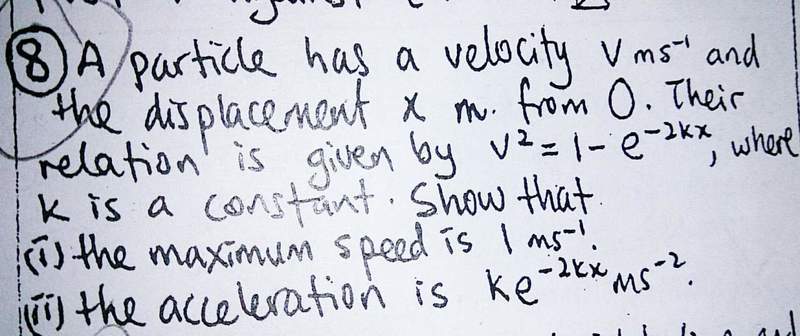 ⑧ A particle has a velocity v ms⁻¹ and
the displacement x m. from O. Their
relation is given by v² = 1 - e⁻²ᵏˣ, where
k is a constant. Show that
(i) the maximum speed is 1 ms⁻¹.
(ii) the acceleration is ke⁻²ᵏˣ ms⁻².